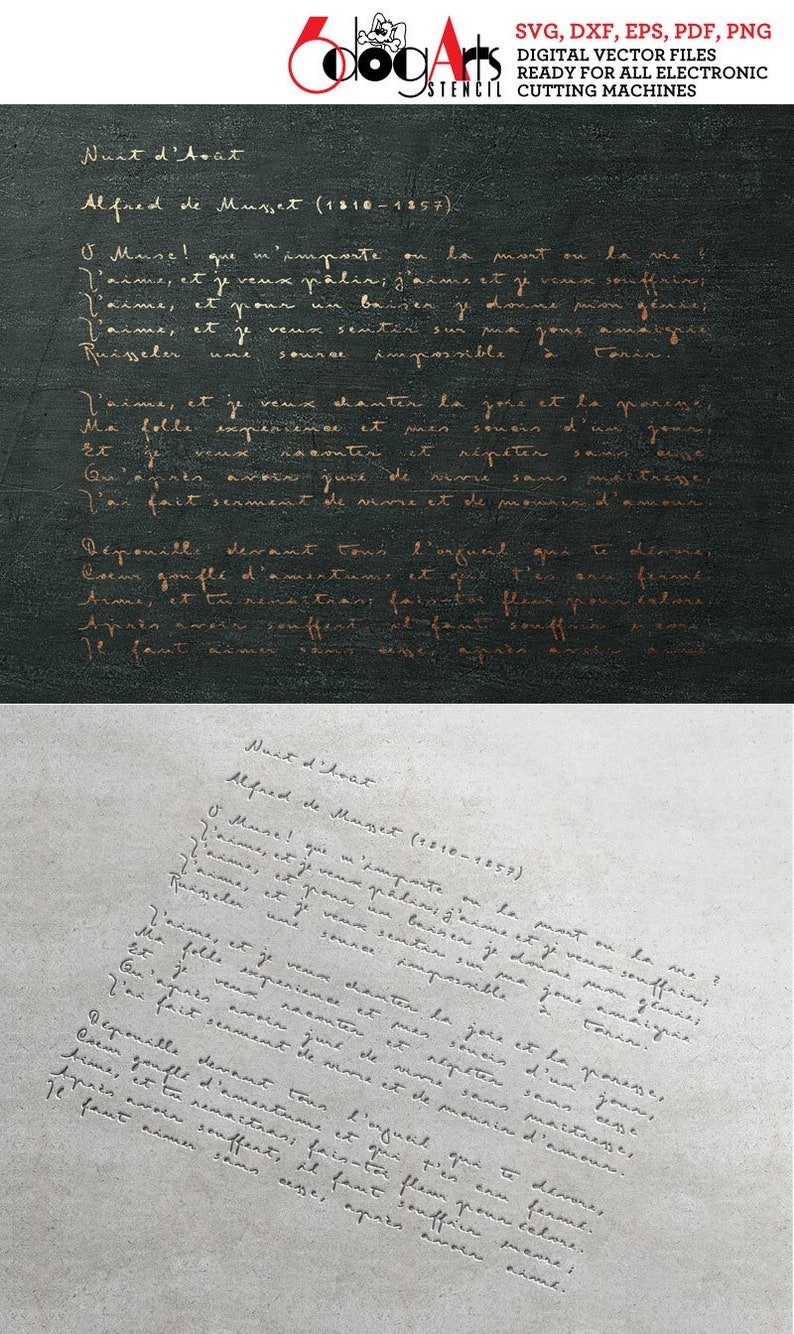 6dogArts
STENCIL
SVG, DXF, EPS, PDF, PNG
DIGITAL VECTOR FILES
READY FOR ALL ELECTRONIC
CUTTING MACHINES
Nuit d'Août
Alfred de Musset (1810-1857)
O Muse! que m'importe ou la mort ou la vie ?
J'aime, et je veux pâlir; j'aime et je veux souffrir;
J'aime, et pour un baiser je donne mon génie;
J'aime, et je veux sentir sur ma joue amaigrie
Ruisseler une source impossible à tarir.
J'aime, et je veux chanter la joie et la paresse,
Ma folle experience et mes soucis d'un jour,
Et je veux raconter et répéter sans cesse
Qu'après avoir juré de vivre sans maîtresse,
J'ai fait serment de vivre et de mourir d'amour.
Dépouille devant tous l'orgueil qui te dévore,
Coeur gonflé d'amertume et qui t'es cru fermé.
Aime, et tu renaîtras; fais-toi fleur pour éclore.
Après avoir souffert, il faut souffrir encore;
Il faut aimer sans cesse, après avoir aimé.
Nuit d'Août
Alfred de Musset (1810-1857)
O Muse! que m'importe ou la mort ou la vie ?
J'aime, et je veux pâlir; j'aime et je veux souffrir;
J'aime, et pour un baiser je donne mon génie;
J'aime, et je veux sentir sur ma joue amaigrie
Ruisseler une source impossible à tarir.
J'aime, et je veux chanter la joie et la paresse,
Ma folle experience et mes soucis d'un jour,
Et je veux raconter et répéter sans cesse
Qu'après avoir juré de vivre sans maîtresse,
J'ai fait serment de vivre et de mourir d'amour.
Dépouille devant tous l'orgueil qui te dévore,
Coeur gonflé d'amertume et qui t'es cru fermé.
Aime, et tu renaîtras; fais-toi fleur pour éclore.
Après avoir souffert, il faut souffrir encore;
Il faut aimer sans cesse, après avoir aimé.